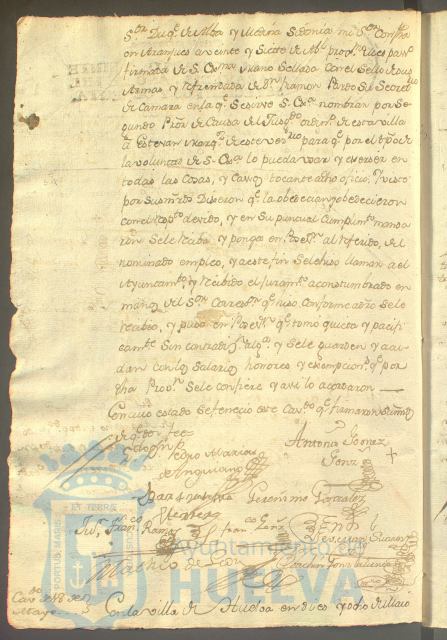 S.or Duq.e de Alba y Medina Sidonia mi S.or Con fha
en Aranjuez a veinte y siete de Ab.l prox.mo
firmada de S. Ex.a mano sellada con el sello de sus
Armas, y refrendada de D.n Ramon Pardo su Secret.rio
de Camara en la q.e se sirve S. Ex.a nombrar por Se
gundo Pror. de Causa del Juzg.do ordin.o de esta villa
a Estevan Marq.z de este vec.rio para q.e por el tpo de
la voluntad de S. Exa. lo pueda usar y exerser en
todas las Cosas, y Casos tocante a dho oficio: Y visto
por sus mrds Dixeron q.e la obedecian y obedecieron
con el resp.to devido, y en su puntual Cumplim.to manda
ron se le reciba y ponga en Poses.n al referido, del
nominado empleo, y a este fin se le hiso llamar a el
Ayuntam.to y recibido el Juram.to acostumbrado en
manos del S.or Correx.or q.e hiso conforme a dro se le
recibio, y puso en Poses.n q.e tomo quieta y pacifi
cam.te sin contradi.on alg.a y se le guarden y acu
dan con los salarios honores y exempcion.s q.e por
dha Prov.n se le confiere y asi lo acordaron
Con cuio estado se fenecio este Cav.do q.e firmaron sus mrds
de q.e doy fee
Pedro Macias
de Anguiano
Antonio Gomez
Gonz.z
Geronimo Gonzalez
Fran.co Ramos
Fran.co Gonz.z
Matheo de Leon
Ayuntamiento de
HUELVA
PORTUS MARIS
ET TERRAE
Cav.do de 8 de
Mayo
En la villa de Huelva en dies y ocho de Maio